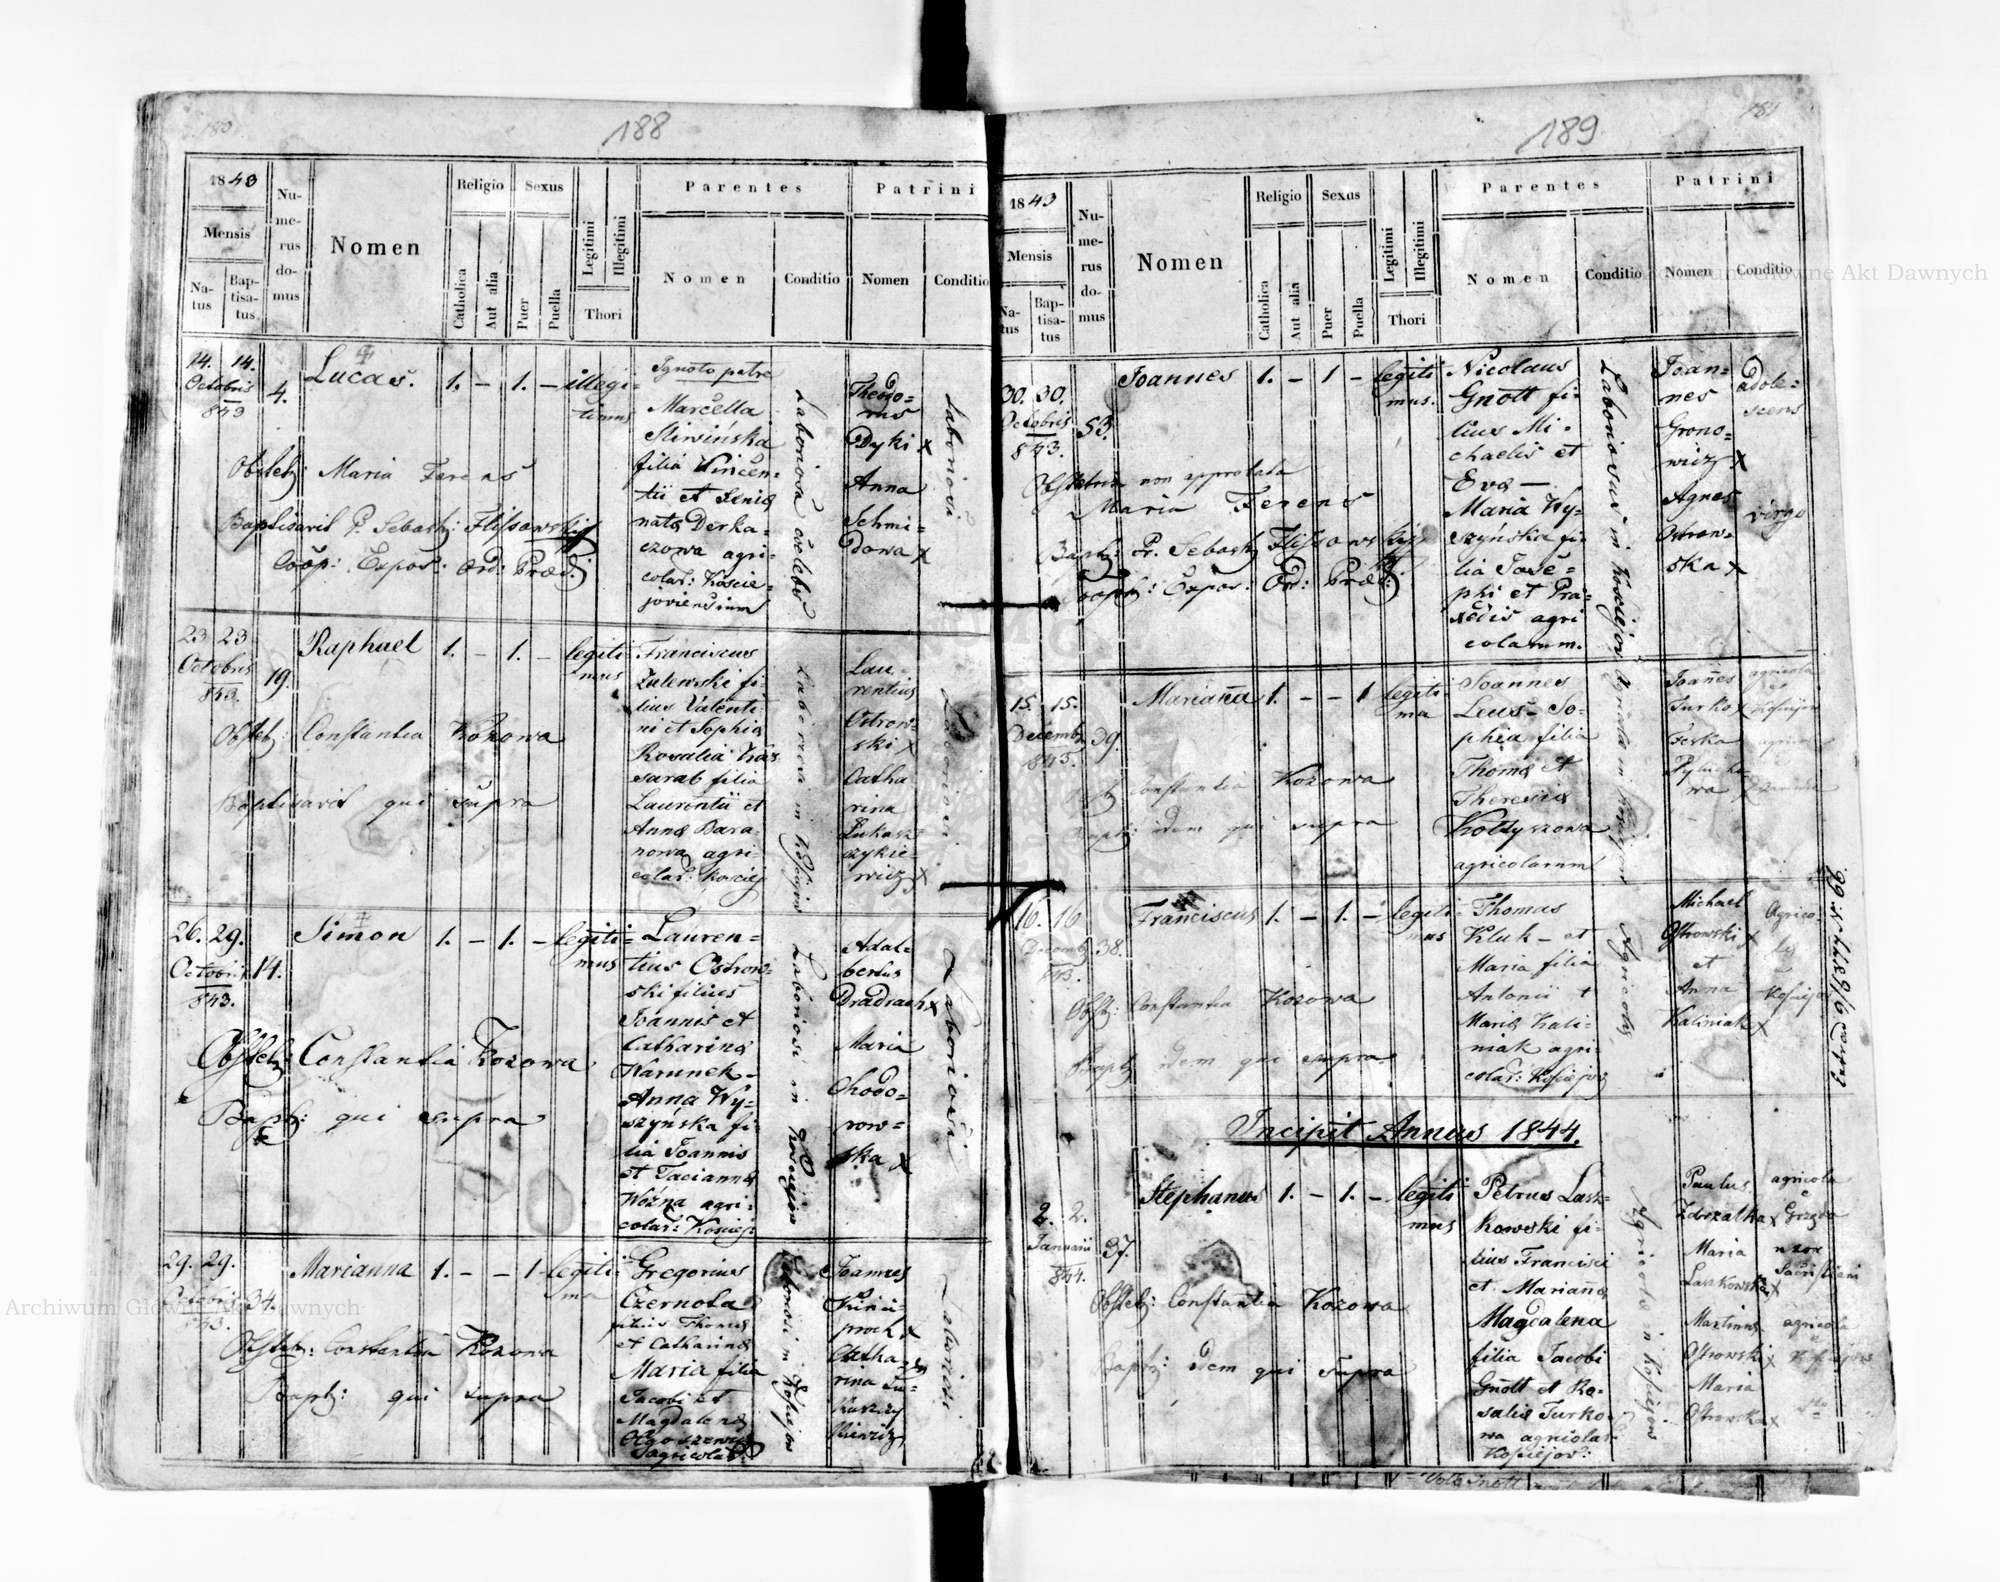 188
1843
Mensis
Natus
Baptisatus
Numerus domus
Nomen
Religio
Catholica
Aut alia
Sexus
Puer
Puella
Legitimi
Illegitimi
Thori
Parentes
Nomen
Conditio
Patrini
Nomen
Conditio
14. 14.
Octobris
843
4.
Lucas.
1. – 1. –
illegi-
timus
Ignoto patre
Marcella
Sliwińska
filia Vincen-
tii et Xeniæ
natæ Derka-
czowa agri-
colar: Koscie-
joviensium
Laboriosa cælebs
Theodo=
rus
Dyki x
Anna
Schmi-
dowa x
Laboriosi
Obstet: Maria Ferens
Baptisavit P. Sebast: Flissowski
Coop: Expos: Ord: Præd:
23 23
Octobris
843.
19.
Raphael
1. – 1. –
legiti-
mus
Franciscus
Zalewski fi-
lius Valenti-
ni et Sophiæ
Rosalia
sarab filia
Laurentii et
Annæ Bara-
nowa agri-
colar: Kosciej
Lau-
rentius
Ostrow-
ski x
Catha
rina
Łukasz-
czykie-
wicz x
Laboriosi
Obstet: Constantia Kozowa
Baptisavit qui supra
26. 29.
Octobris
843.
14.
Simon
1. – 1. –
legiti=
mus
Lauren=
tius Ostrow-
ski filius
Joannis et
Catharinæ
Karunek –
Anna Wy-
szyńska fi-
lia Joannis
et Taciannæ
Woźna agri-
colar: Kosciej:
Laboriosi in Kosciejów
Adal-
bertus
Dradrach x
Maria
Chodo-
row=
ska x
Laboriosi
Obstet: Constantia Kozowa
Bapt: qui supra
29. 29.
Octobris
843.
34.
Marianna
1. – – 1
legiti-
ma
Gregorius
Czernota
filius Thomæ
et Catharinæ
Maria filia
Jacobi et
Magdalenæ
agricolar:
Laboriosi in Kosciejów
Joannes
Kinci-
proch x
Catha-
rina Łu-
kaszczy
kiewicz
Laboriosi
Obstet: Constantia Kozowa
Bapt: qui supra
189
1843
Mensis
Natus
Baptisatus
Numerus domus
Nomen
Religio
Catholica
Aut alia
Sexus
Puer
Puella
Legitimi
Illegitimi
Thori
Parentes
Nomen
Conditio
Patrini
Nomen
Conditio
30. 30.
Octobris
843.
53.
Joannes
1. – 1 –
legiti
mus.
Nicolaus
Gnott fi-
lius Mi-
chaelis et
Eva –
Maria Wy-
szyńska fi-
lia Jose-
phi et Pra-
xedis agri
colarum.
Laboriosus in Kosciejów
Joan=
nes
Grono=
wicz x
Agnes
Ostrow-
ska x
adole-
scens
virgo
Obstetrix non approbata
Maria Ferens
Bapt: Pr. Sebast: Flissowski
Coop: Expos: Ord: Præd:
15. 15.
Decemb:
843.
39.
Marianna
1. – – 1
legiti-
ma
Joannes
Leus – So-
phia filia
Thomæ et
Theresiæ
Kołtyszowa
agricolarum
Joannes
Turko x
agricola
Constantia Kozowa
Bapt: idem qui supra
16. 16
Decemb:
843.
38.
Franciscus
1. – 1. –
legiti-
mus
Thomas
Kluk – et
Maria filia
Antonii et
Mariæ Kali-
niak agri-
colar: Kosciejov
Agricolæ
Michael
Ostrowski x
et
Anna
Kaliniak x
Agrico-
læ
Obst: Constantia Kozowa
Bapt: idem qui supra
Incipit Annus 1844.
2. 2.
Januarii
844.
37.
Stephanus
1. – 1. –
legiti
mus
Petrus Lasz-
kowski fi-
lius Francisci
et Mariannæ
Magdalena
filia Jacobi
Gnott et Ro-
saliæ Turko-
wa agricolar:
Kosciejov:
Agricola in Kosciejów
Paulus
Zdrzałka x
Maria
Laszkowska x
Martinus
Ostrowski x
Maria
Ostrowska x
agricola
agricola
Obstet: Constantia Kozowa
Bapt: idem qui supra
Archiwum Główne Akt Dawnych
Archiwum Główne Akt Dawnych